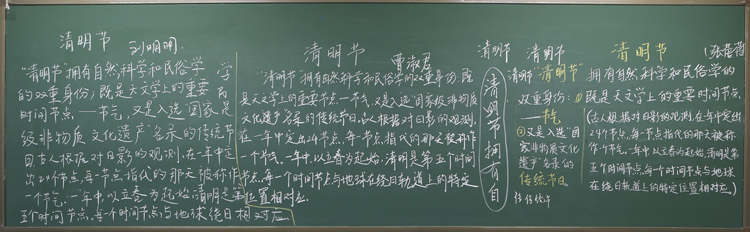 清明节
刘明明
"清明节"拥有自然科学和民俗学
的双重身份,既是天文学上的重要
时间节点,一节气,又是入选"国家
级非物质文化遗产"名录的传统节
日古人根据对日影的观测,在一年中定
出24个节点,每一节点指代的那天被称作
一个节气,一年中,以立春为起始,清明是第
五个时间节点,每一个时间节点与地球绕日相对应
学
是
位置相对应.
清明节
曹淑君
"清明节"拥有自然科学和民俗学的双重身份,既
是天文学上的重要节点一节气,又是入选"国家级非物质
文化遗产"名录的传统节日,古人根据对日影的观测,
在一年中定出24节点,每一节点指代的那天被称作
一个节气.一年中,以立春为起始,清明是第五个时间
节点,每一个时间节点与地球在绕日轨道上的特定
清明节
清明节拥有自
清明节
清明节"清明节"
双重身份:
一节气
②又是入选"国
家非物质文化
遗产"名录的
传统节日.
传传统
清明节
拥有自然科学和民俗学的
①既是天文学上的重要时间节点,
(古人根据对日影的观测,在一年中定出
24个节点,每一节点指代的那天被称
作一个节气.一年中,以立春为起始,清明是第
五个时间节点,每一个时间节点与地球
在绕日轨道上的特定位置相对应.)